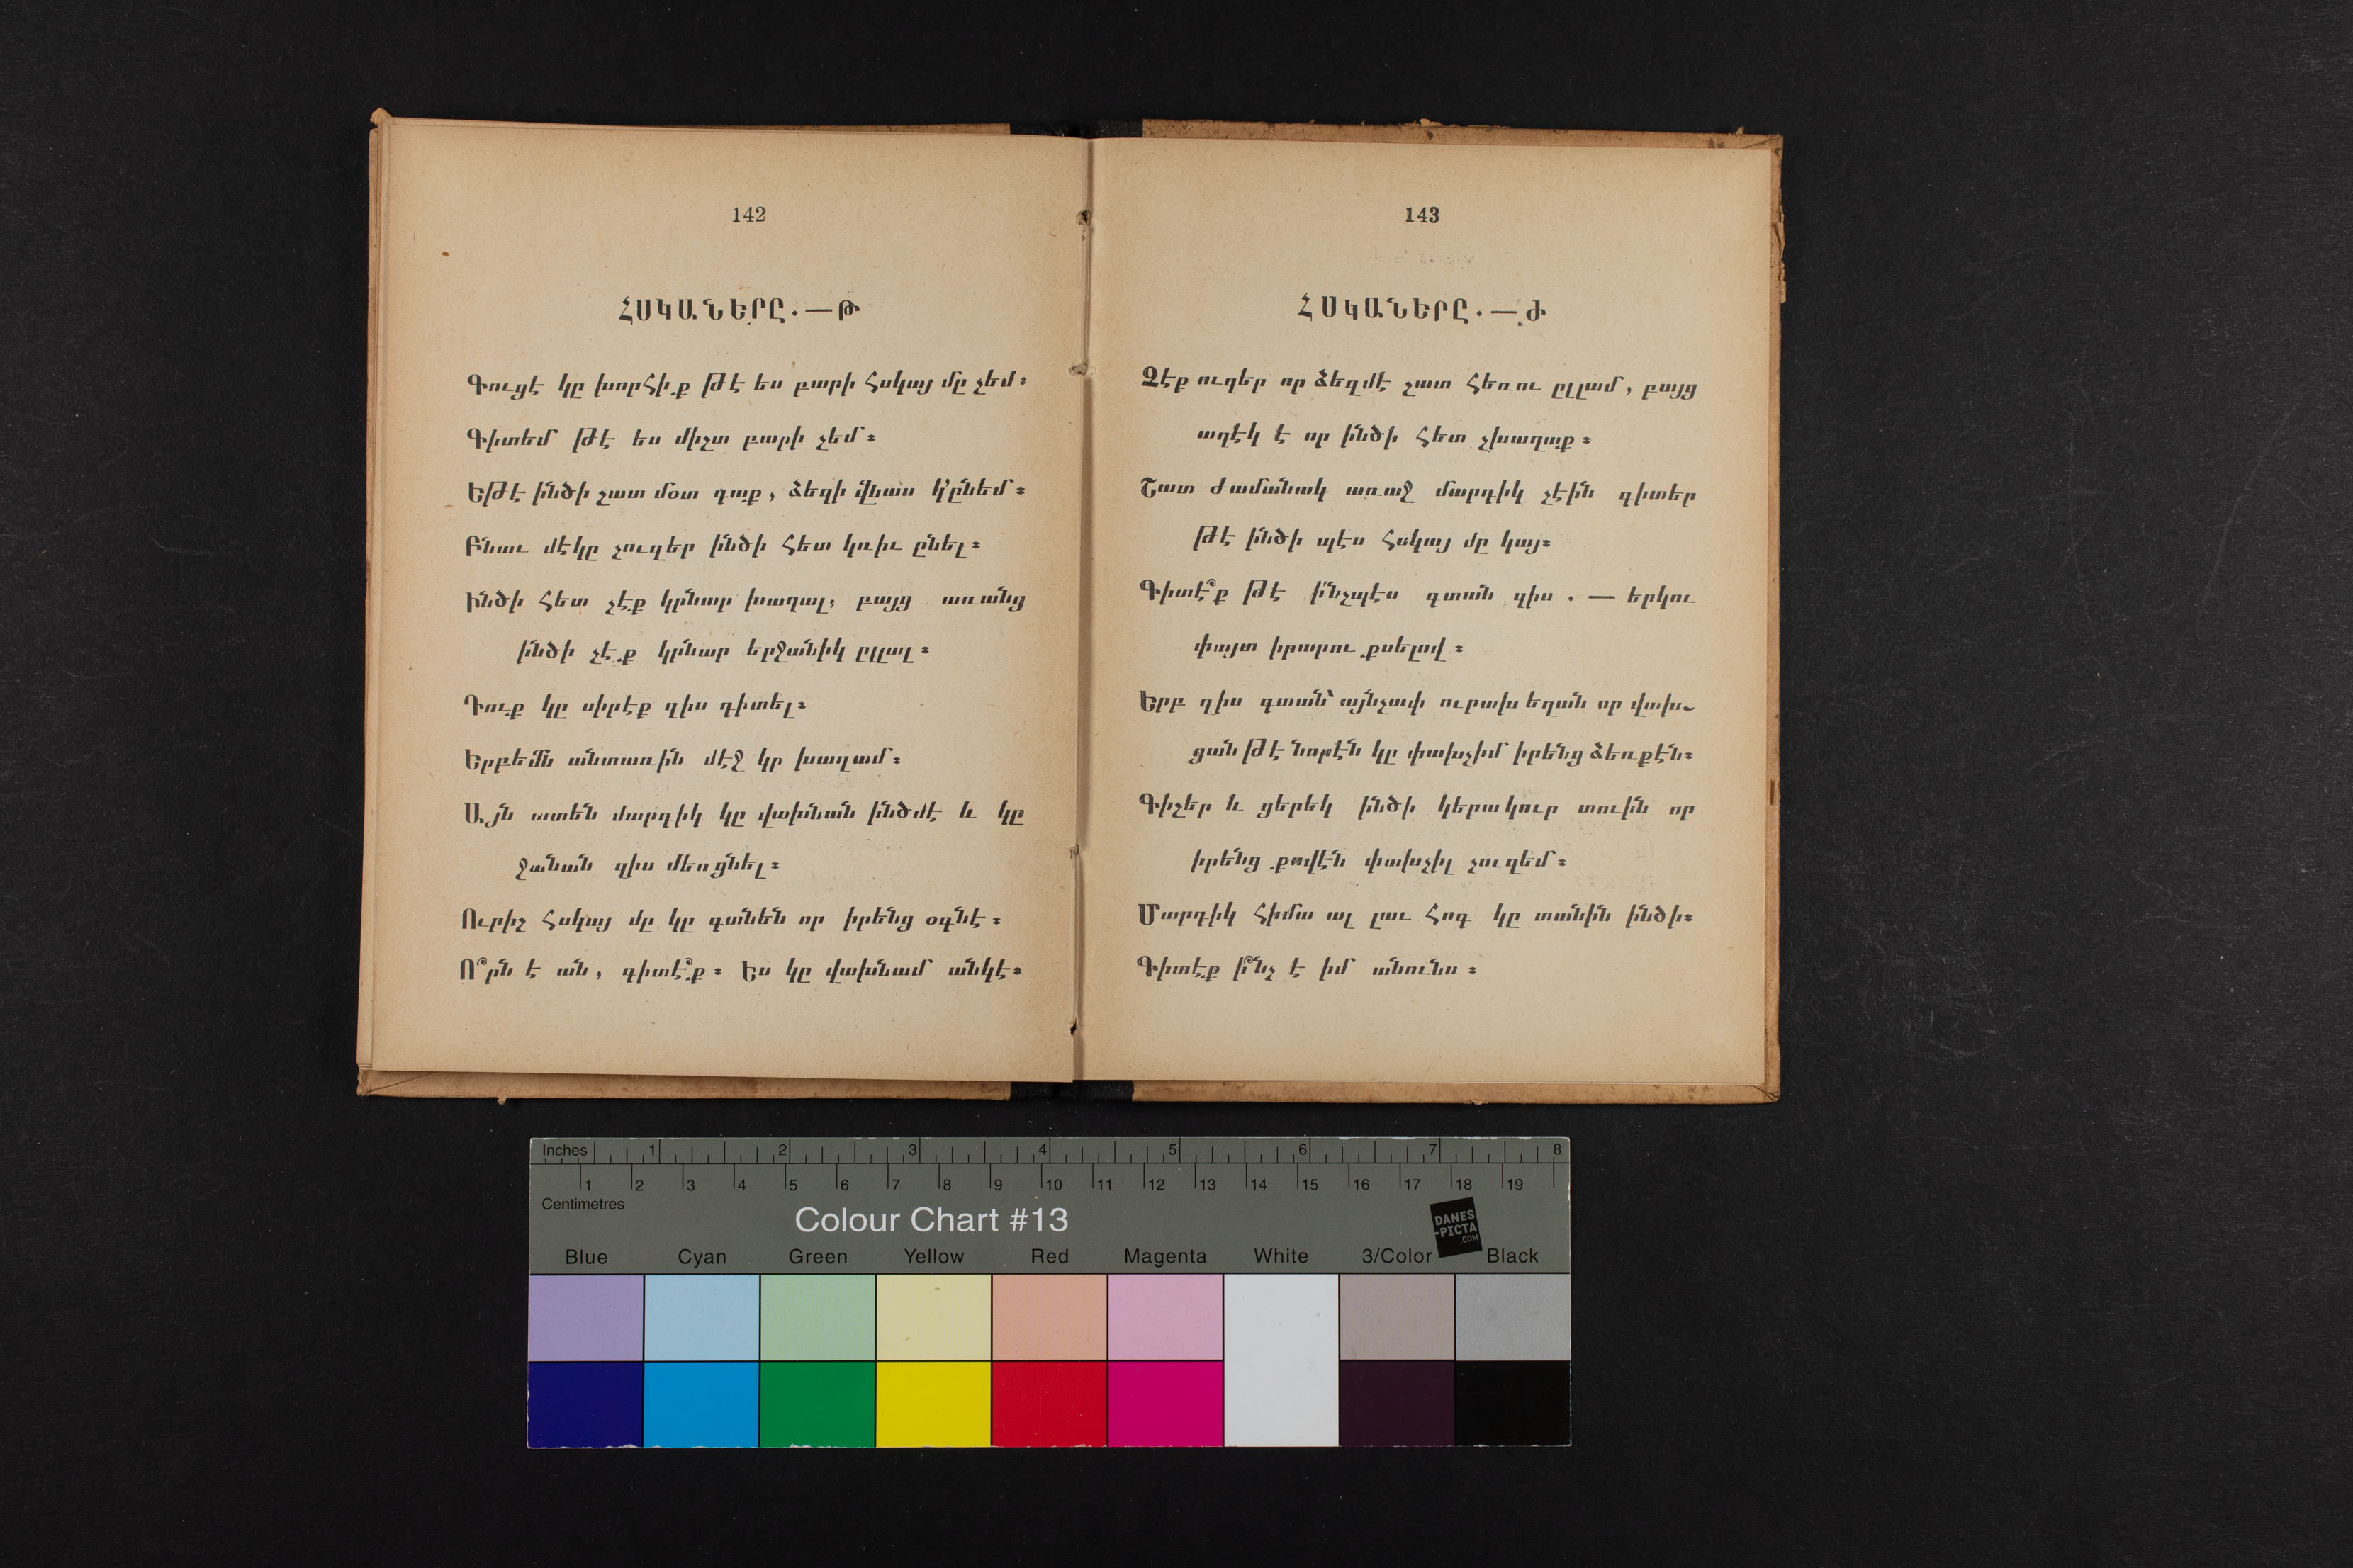 142
ՀՍԿԱՆԵՐԸ.—Թ
Գուցէ կը խորհիք թէ ես բարի հսկայ մը չեմ։
Գիտեմ թէ ես միշտ բարի չեմ։
Եթէ ինծի շատ մօտ գաք, ձեզի վնաս կ'ընեմ։
Բնաւ մէկը չուզեր ինծի հետ կռիւ ընել։
Ինծի հետ չէք կրնար խաղալ, բայց առանց
ինծի չէք կրնար երջանիկ ըլլալ։
Դուք կը սիրէք զիս դիտել։
Երբեմն անտառին մէջ կը խաղամ։
Այն ատեն մարդիկ կը վախնան ինծմէ և կը
ջանան զիս մեռցնել։
Ուրիշ հսկայ մը կը գանեն որ իրենց օգնէ։
Ո՞րն է ան, գիտէ՞ք։ Ես կը վախնամ անկէ։
143
ՀՍԿԱՆԵՐԸ.—Ժ
Չէք ուզեր որ ձեզմէ շատ հեռու ըլլամ, բայց
աղէկ է որ ինծի հետ չխաղաք։
Շատ ժամանակ առաջ մարդիկ չէին գիտեր
թէ ինծի պէս հսկայ մը կայ։
Գիտէ՞ք թէ ի՛նչպէս գտան զիս. — երկու
փայտ իրարու քսելով։
Երբ զիս գտան՝ այնչափ ուրախ եղան որ վախ֊
ցան թէ նորէն կը փախչիմ իրենց ձեռքէն։
Գիշեր և ցերեկ ինծի կերակուր տուին որ
իրենց քովէն փախչիլ չուզեմ։
Մարդիկ հիմա ալ լաւ հոգ կը տանին ինծի։
Գիտէք ի՞նչ է իմ անունս։
Inches 1 2 3 4 5 6 7 8
1 2 3 4 5 6 7 8 9 10 11 12 13 14 15 16 17 18 19
Centimetres
Colour Chart #13
DANES
-PICTA
.COM
Blue Cyan Green Yellow Red Magenta White 3/Color Black